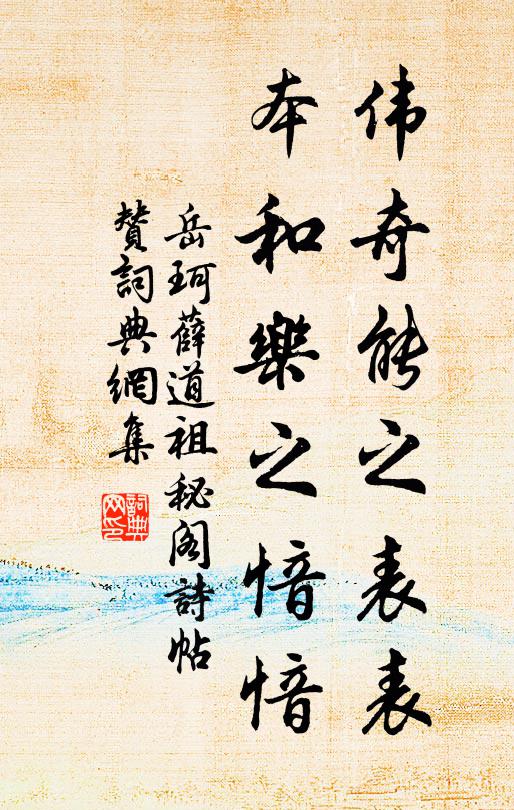 伟奇能之表表
本和樂之愔愔
岳珂薛道祖秘阁詩帖
赞詞典網集
詞典网印